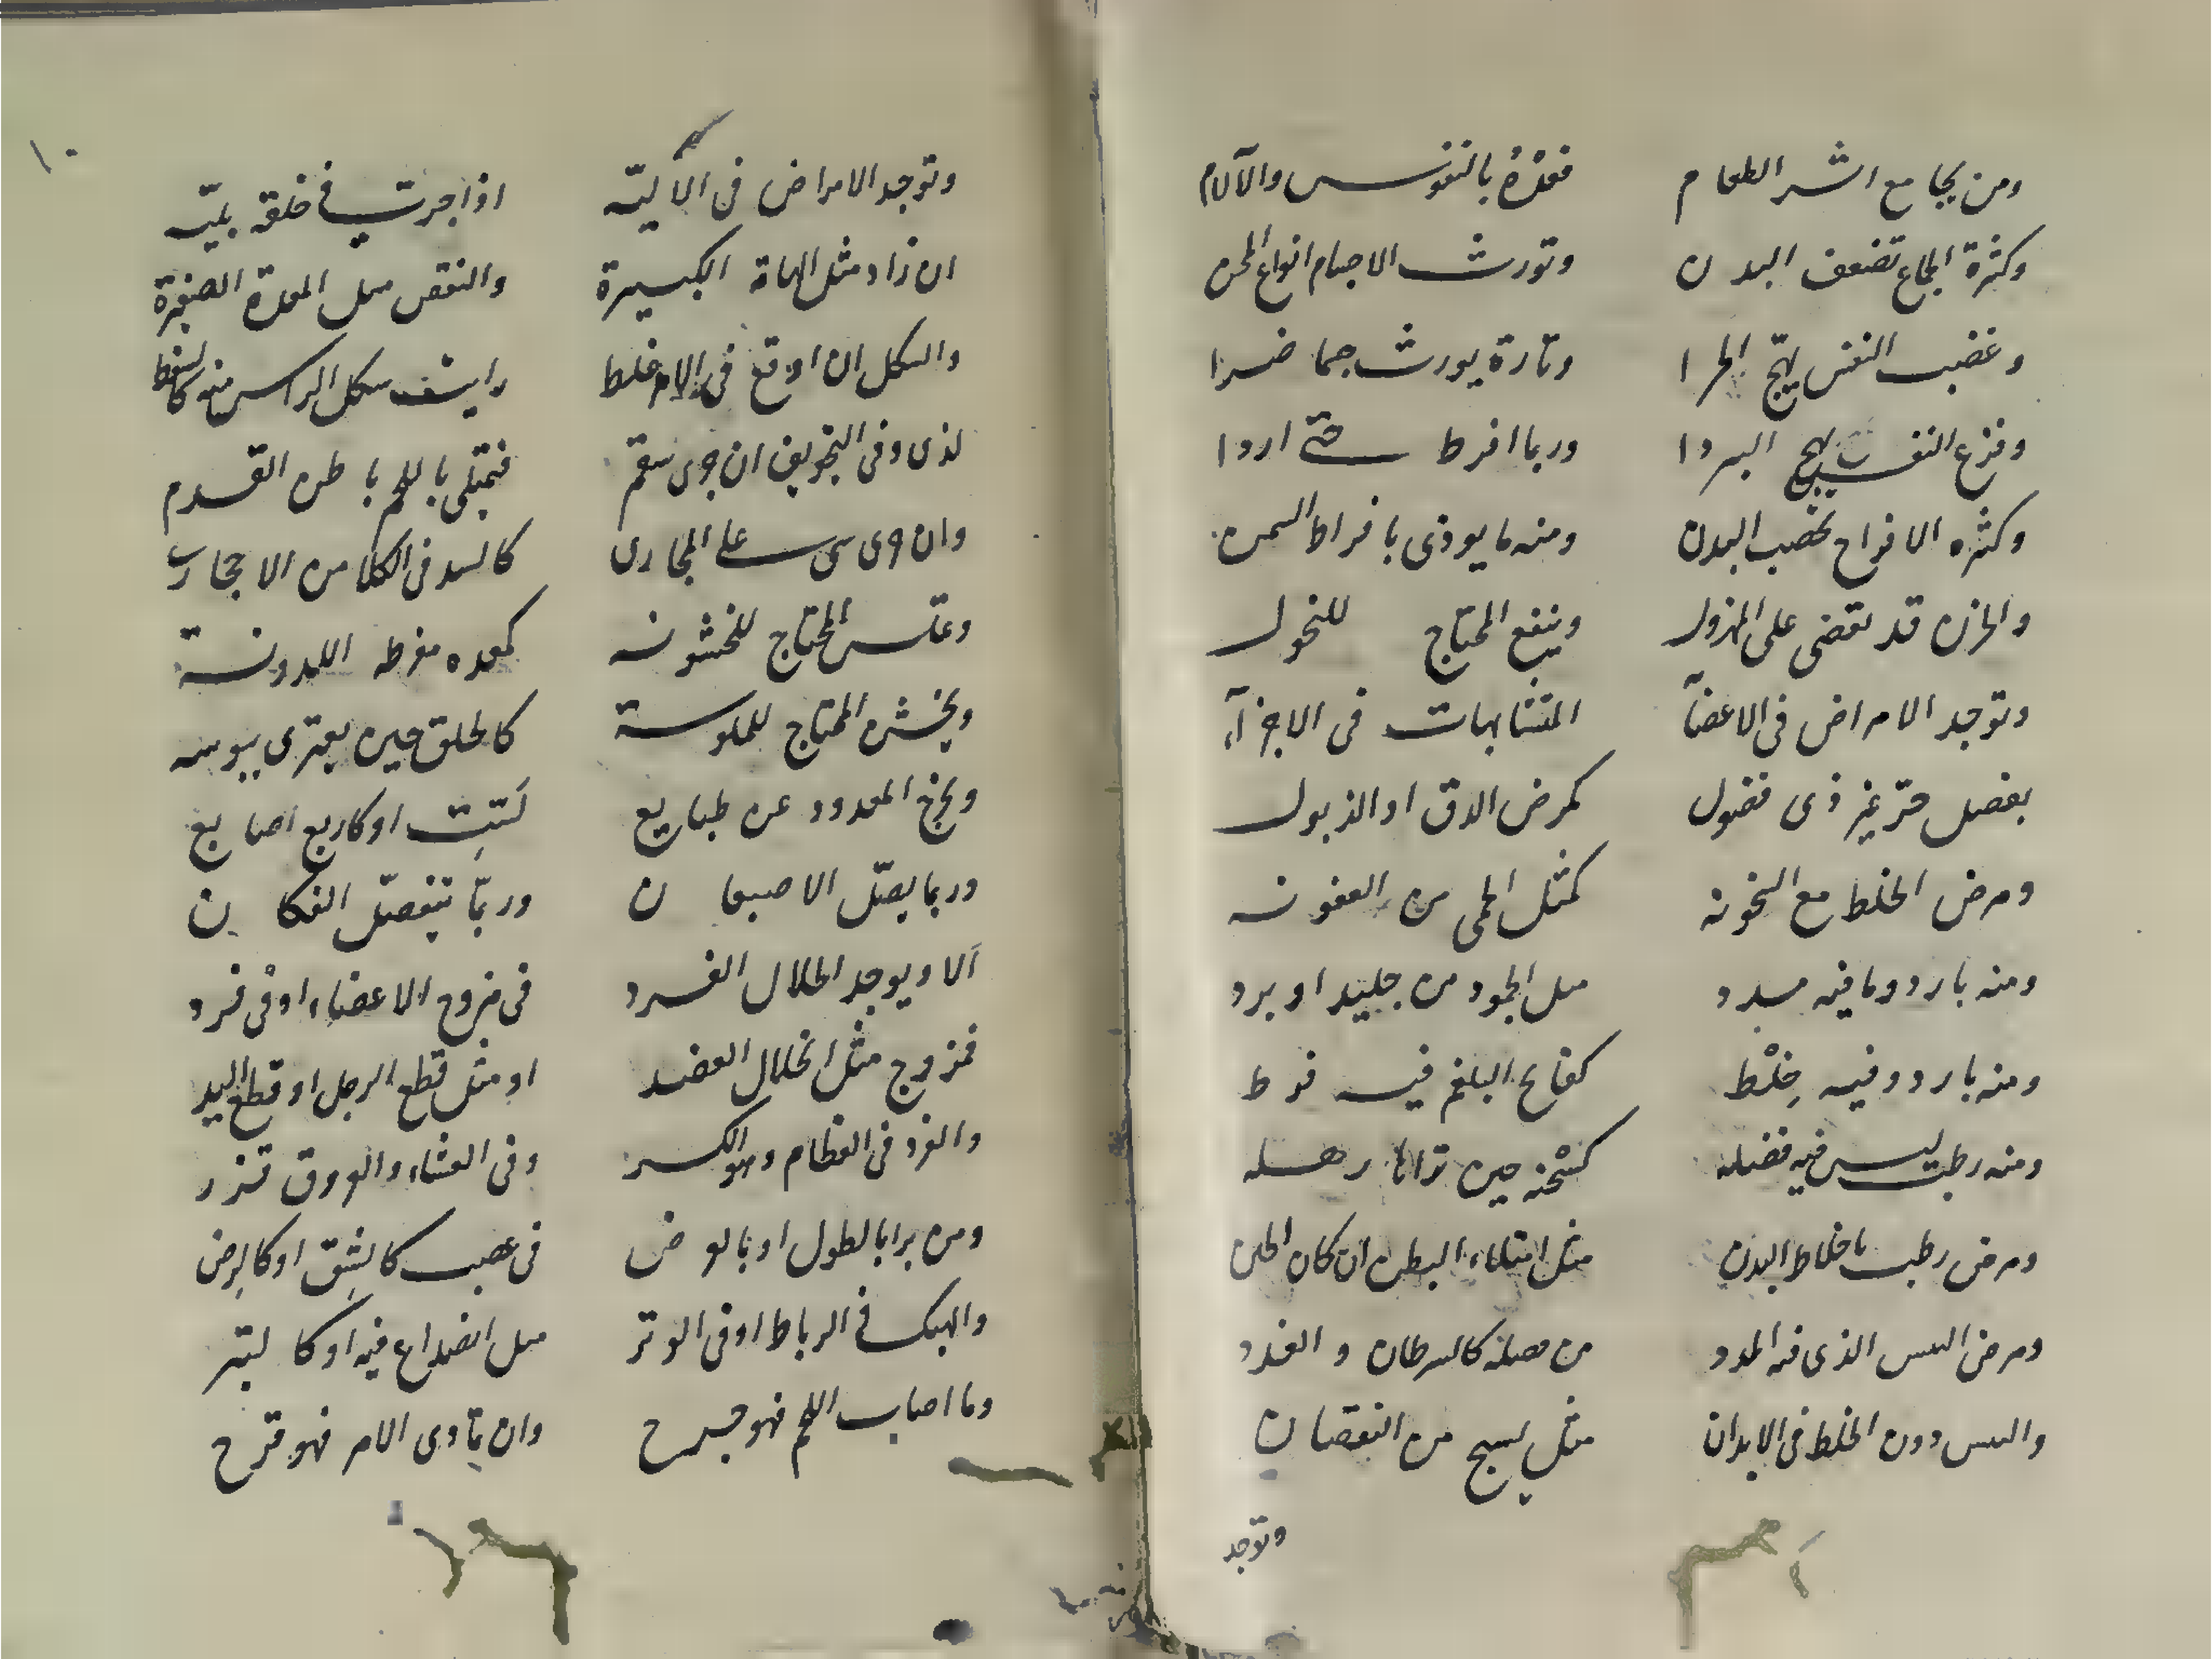 ومن يجامع اثر الطعام فعدّه بالنقرس والآلام
وكثرة الجماع تضعف البدن وتورث الاجسام انواع المحن
وغضب النفس يهيج الحرا وتارة يورث جسما ضرا
وفزع النفس يهيج البردا وربما افرط حتى اردا
وكثره الافراح تخصب البدن ومنه ما يوذى بافراط السمن
والحزن قد يقضى على المهزول وينفع المحتاج للنحول
وتوجد الامراض فى الاعضآ المتشابهات فى الاجزآء
بفضل حرّ غير ذى فضول كمرض الدق او الذبول
ومرض الخلط مع السخونه كمثل الحمى من العفونه
ومنه بارد وما فيه مدد مثل الجمود من جليد او برد
ومنه بارد وفيه خِلْط كفالج البلغم فيه فرط
ومنه رطب ليس فيه فضله كسْحنه حين تراها رهله
ومرض رطب باخلاط البدن مثل امتلاء البطن ان كان الحبن
ومرض اليبس الذى فيه المدد من فضلة كالسرطان والغدد
واليبس دون الخلط فى الابدان مثل تشنج من النقصان
وتوجد
١٠
وتوجد الامراض فى الآليّه اذا جرت فى خلقه بليّه
ان زاد مثل الهامة الكبيرة والنقص مثل المعدة الصغيرة
والشكل ان اوقع فى الامر غلط رايت شكل الراس منه كالسفط
لذى وفى التجويف ان جرى سقم فيمتلى باللحم باطن القدم
وان جرى شى على المجارى كالسد فى الكلا من الاحجار
وعكس المحتاج للخشونه كمعده مفرطه اللدونة
ويخشن المحتاج للملوسة كالحلق حين يعترى يبوسه
ويخرج المعدود عن طبايع لستِت او كاربع اصابع
وربما يصّل الاصبعان وربّما يتفصّل الفكان
الا ويوجد انحلال الفرد فى مزوج الاعضاء او فى فرد
فمزوج مثل انحلال العضد او مثل قطع الرجل او قطع اليد
والفرد فى العظام وهو الكسر وفى العشاء والعروق تزر
ومن برا بالطول او بالعرض فى عصب كالشِق او كالرض
والهتك فى الرباط او فى الوتر مثل انصداع فيه او كالبتر
وما اصاب اللحم فهو جرح وان تمادى الامر فهو قرح